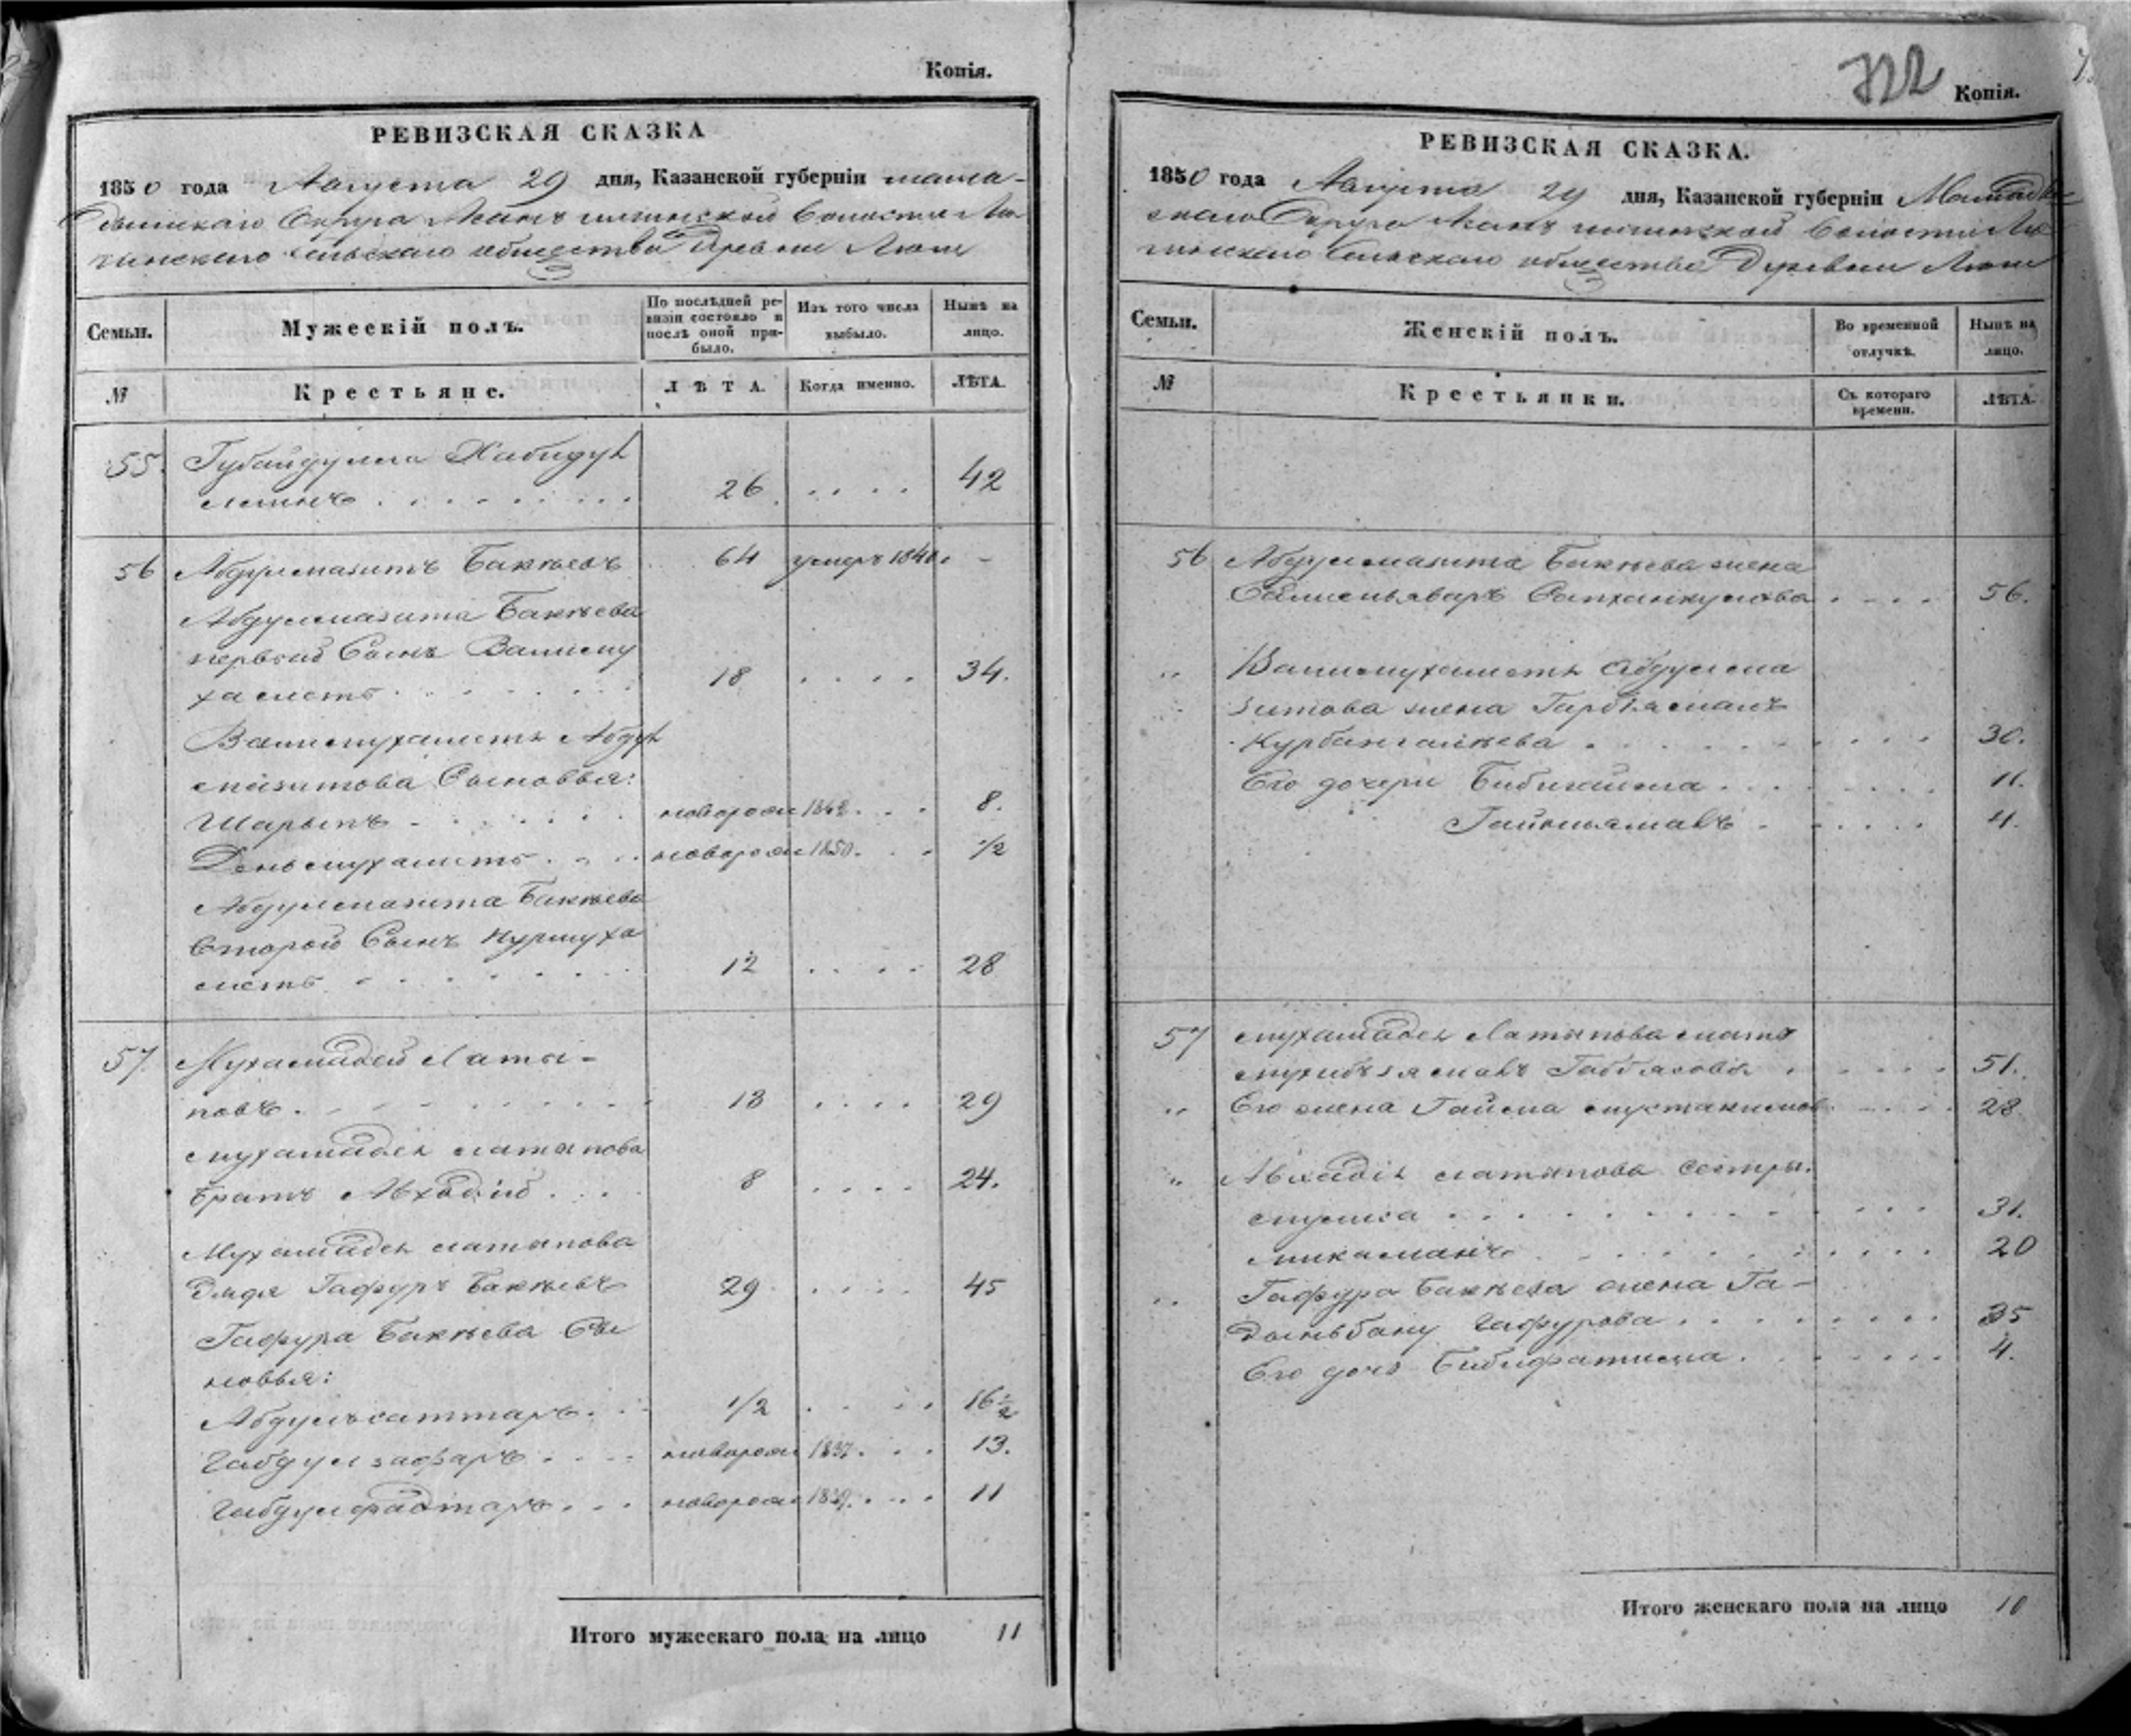 Копія.
РЕВИЗСКАЯ СКАЗКА
1850 года Августа 29 дня, Казанской губерніи мама-
дышскаго Округа
сельскаго общества Деревни
Семьи.
Мужескій полъ.
По послѣдней ре-
визіи состояло и
послѣ оной при-
было.
Изъ того числа
выбыло.
Нынѣ на
лицо.
№
Крестьяне.
ЛѢТА.
Когда именно.
ЛѢТА.
55. Губайдулла Хабидул
линъ . . . . . . . . 26 . . . . 42
56 Абдулмазитъ Бакѣевъ 64 умеръ 1840. -
Абдулмазита Бакѣева
первый Сынъ Валиму
хаметъ . . . . . . 18 . . . . 34.
Валимухаметь Абдул
мазитова Сыновья:
Шарыпъ . . . . . . новорож 1842 . . . 8.
Деньмухаметъ . . . новорож 1850 . . . 1/2
Абдулмазита Бакѣева
второй Сынъ Нурмуха
метъ . . . . . . . 12 . . . . 28
57. Мухамадей Латы-
повъ . . . . . . . . 13 . . . . 29
Мухамадея латыпова
братъ Авхадій . . . 8 . . . . 24.
Мухамадея латыпова
дядя Гафуръ Бакѣевъ 29 . . . . 45
Гафура Бакѣева Сы
новья:
Абдулъсаттаръ . . 1/2 . . . . 16 1/2
Габдулзафаръ . . . . новорож 1837 . . . 13.
Габдулфаттаръ . . . новорож 1839 . . . 11
Итого мужескаго пола на лицо 11
722
Копія.
РЕВИЗСКАЯ СКАЗКА.
1850 года Августа 29 дня, Казанской губерніи Мамады
скаго Округа
сельскаго общества Деревни
Семьи.
Женскій полъ.
Во временной
отлучкѣ.
Нынѣ на
лицо.
№
Крестьянки.
Съ котораго
времени.
ЛѢТА.
56 Абдулмазита Бакѣева жена
. . . . 56.
" Валимухаметя Абдулма
зитова жена
Курбангалѣева . . . . . . . . 30.
Его дочери Бибигайша . . . . . . . 11.
. . . . . 4.
57 Мухамадея Латыпова мать
. . . . . 51.
" Его жена Гайша . . . . 28.
" Авхадія латыпова сестры.
. . . . . . . . . . 31.
. . . . . . . . . 20
" Гафура Бакѣева жена Га-
дыльбану Гафурова . . . . . . . . 35
Его дочь Бибифатима . . . . . . . 4.
Итого женскаго пола на лицо 10